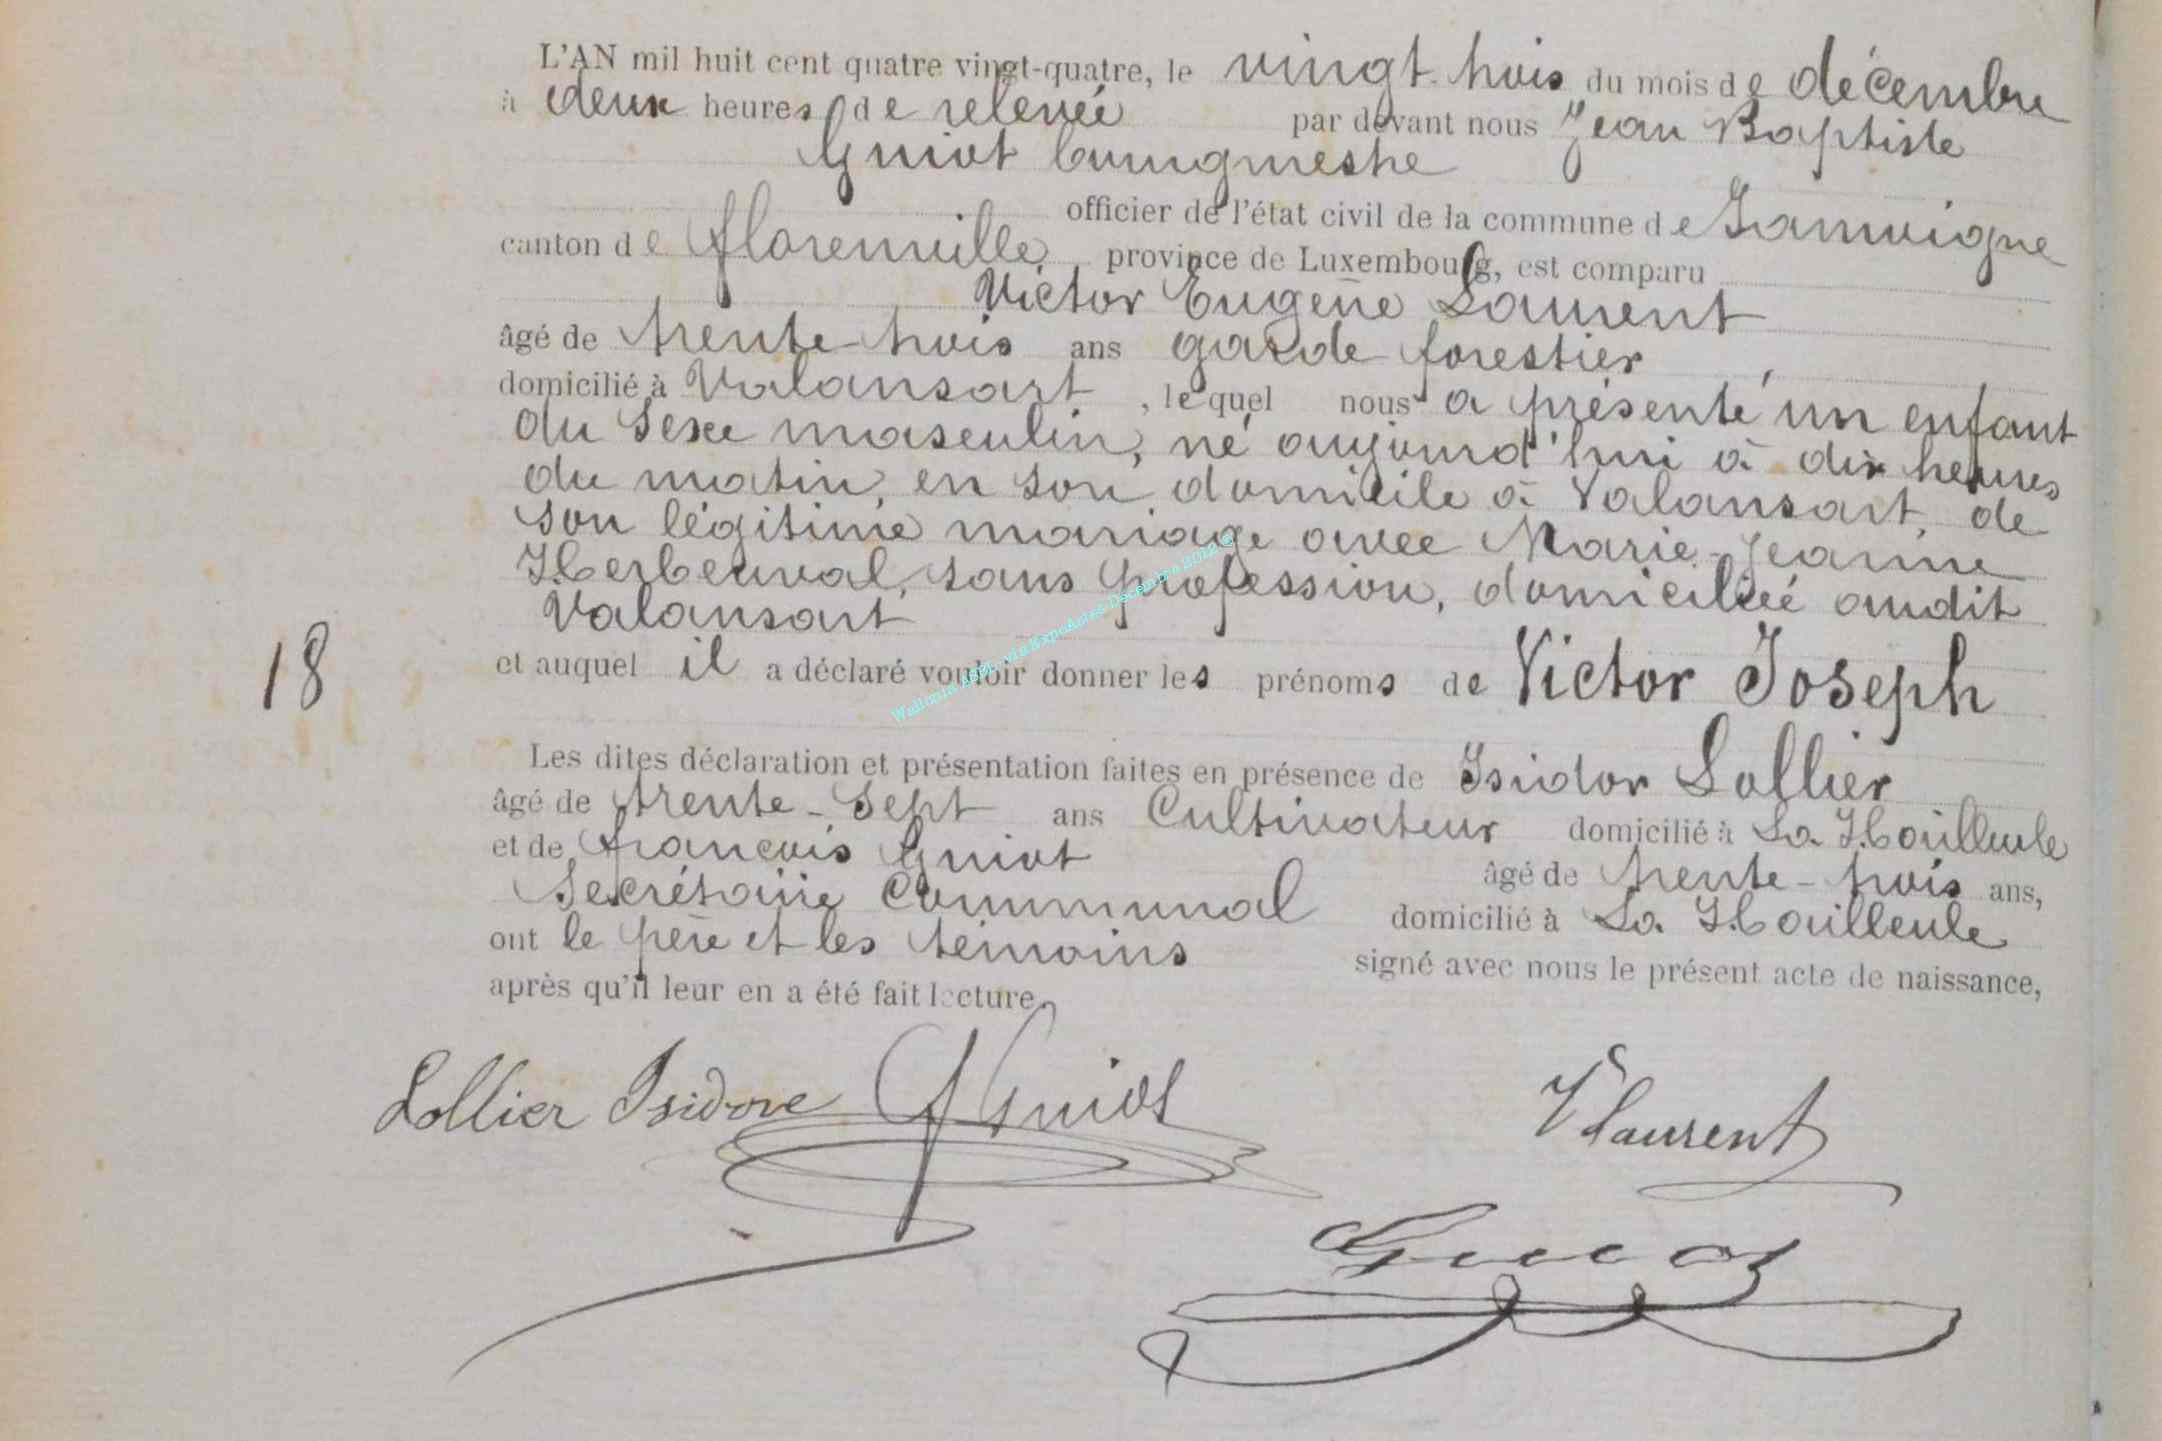 L'AN mil huit cent quatre vingt-quatre, le vingt-trois du mois de décembre
à deux heures de relevée par devant nous Jean Baptiste
Guiot bourgmestre
officier de l'état civil de la commune de Jamoigne
canton de florenville province de Luxembourg, est comparu
Victor Eugène Laurent
âgé de trente-trois ans garde forestier
domicilié à Valansart, lequel nous a présenté un enfant
du sexe masculin, né aujourd'hui à dix heures
du matin, en son domicile à Valansart, de
son légitime mariage avec Marie-Jeanne
Herbeuval, sans profession, domiciliée audit
Valansart
18
et auquel il a déclaré vouloir donner les prénoms de Victor Joseph
Les dites déclaration et présentation faites en présence de Isidor Lollier
âgé de trente-sept ans Cultivateur domicilié à La Hailleule
et de françois Guiot âgé de trente-trois ans,
Secrétaire Communal domicilié à La Hailleule
ont le père et les témoins signé avec nous le présent acte de naissance,
après qu'il leur en a été fait lecture
Lollier Isidore Guiot VLaurent
Guiot
Wallonia ASBL, via ExpoActes Décembre 2012 ©